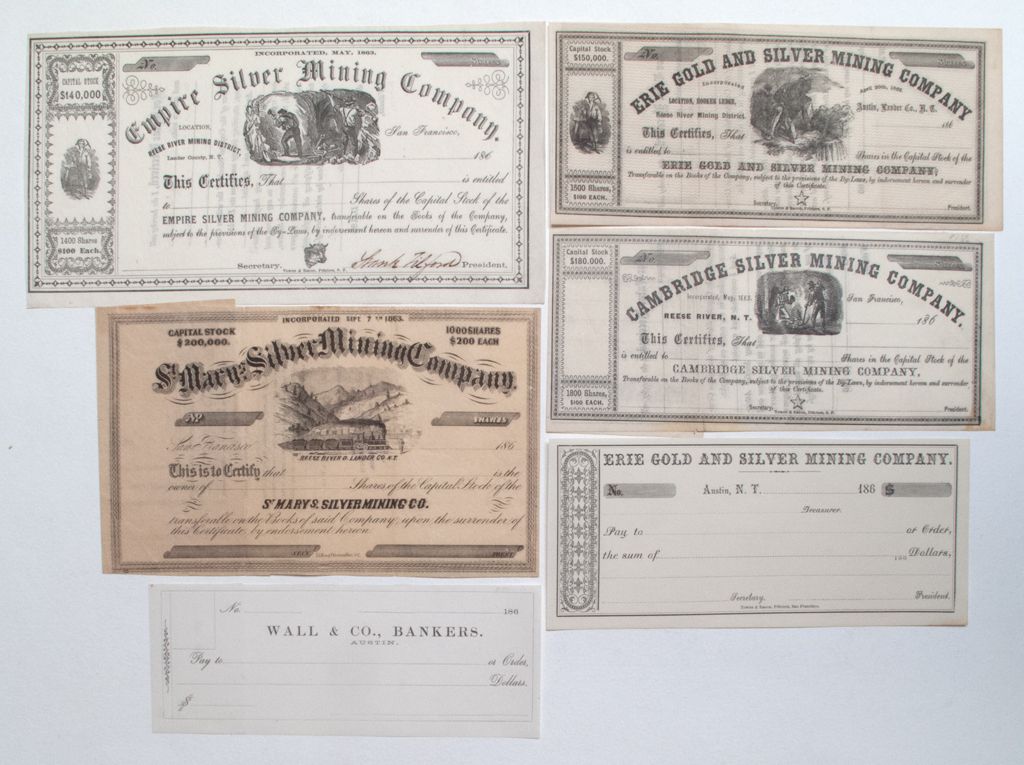 INCORPORATED, MAY, 1863.
No.
Shares.
CAPITAL STOCK
$140,000
Empire Silver Mining Company.
LOCATION,
REESE RIVER MINING DISTRICT,
Lander County, N. T.
San Francisco,
186
This Certifies, That
is entitled
to
Shares of the Capital Stock of the
EMPIRE SILVER MINING COMPANY, transferable on the Books of the Company,
subject to the provisions of the By-Laws, by indorsement hereon and surrender of this Certificate.
1400 Shares
$100 Each.
Secretary.
Frank Tilford President.
Towne & Bacon, Printers, S. F.
Capital Stock
$150,000.
No.
Shares.
ERIE GOLD AND SILVER MINING COMPANY
Incorporated
April 20th, 1863.
LOCATION, HOOKER LEDGE,
Reese River Mining District.
Austin, Lander Co., N. T.
186
This Certifies, That
is entitled to
Shares in the Capital Stock of the
ERIE GOLD AND SILVER MINING COMPANY;
Transferable on the Books of the Company, subject to the provisions of the By-Laws, by indorsement hereon and surrender
of this Certificate.
1500 Shares,
$100 EACH.
Secretary.
President.
Towne & Bacon, Printers, S. F.
Capital Stock
$180.000.
No.
Shares.
CAMBRIDGE SILVER MINING COMPANY.
Incorporated, May, 1863.
San Francisco,
REESE RIVER, N. T.
186
This Certifies, That
is entitled to
Shares in the Capital Stock of the
CAMBRIDGE SILVER MINING COMPANY,
Transferable on the Books of the Company, subject to the provisions of the By-Laws, by indorsement hereon and surrender
of this Certificate.
1800 Shares,
$100 EACH.
Secretary.
President.
Towne & Bacon, Printers, S. F.
INCORPORATED SEPT. 7TH 1863.
CAPITAL STOCK
$200,000.
1000 SHARES
$200 EACH
St. Marys Silver Mining Company.
No
SHARES
San Francisco
186
REESE RIVER D. LANDER CO N.T.
This is to Certify that
is the
owner of
Shares of the Capital Stock of the
ST MARYS. SILVER MINING CO.
transferable on the Books of said Company, upon the surrender of
this Certificate, by endorsement hereon.
SECY
PRENT
ERIE GOLD AND SILVER MINING COMPANY.
No.
Austin, N. T.
186
$
Treasurer.
Pay to
or Order,
the sum of
100 Dollars,
Secretary.
President.
Towne & Bacon, Printers, San Francisco.
No.
186
WALL & CO., BANKERS.
AUSTIN.
Pay to
or Order,
Dollars.
$